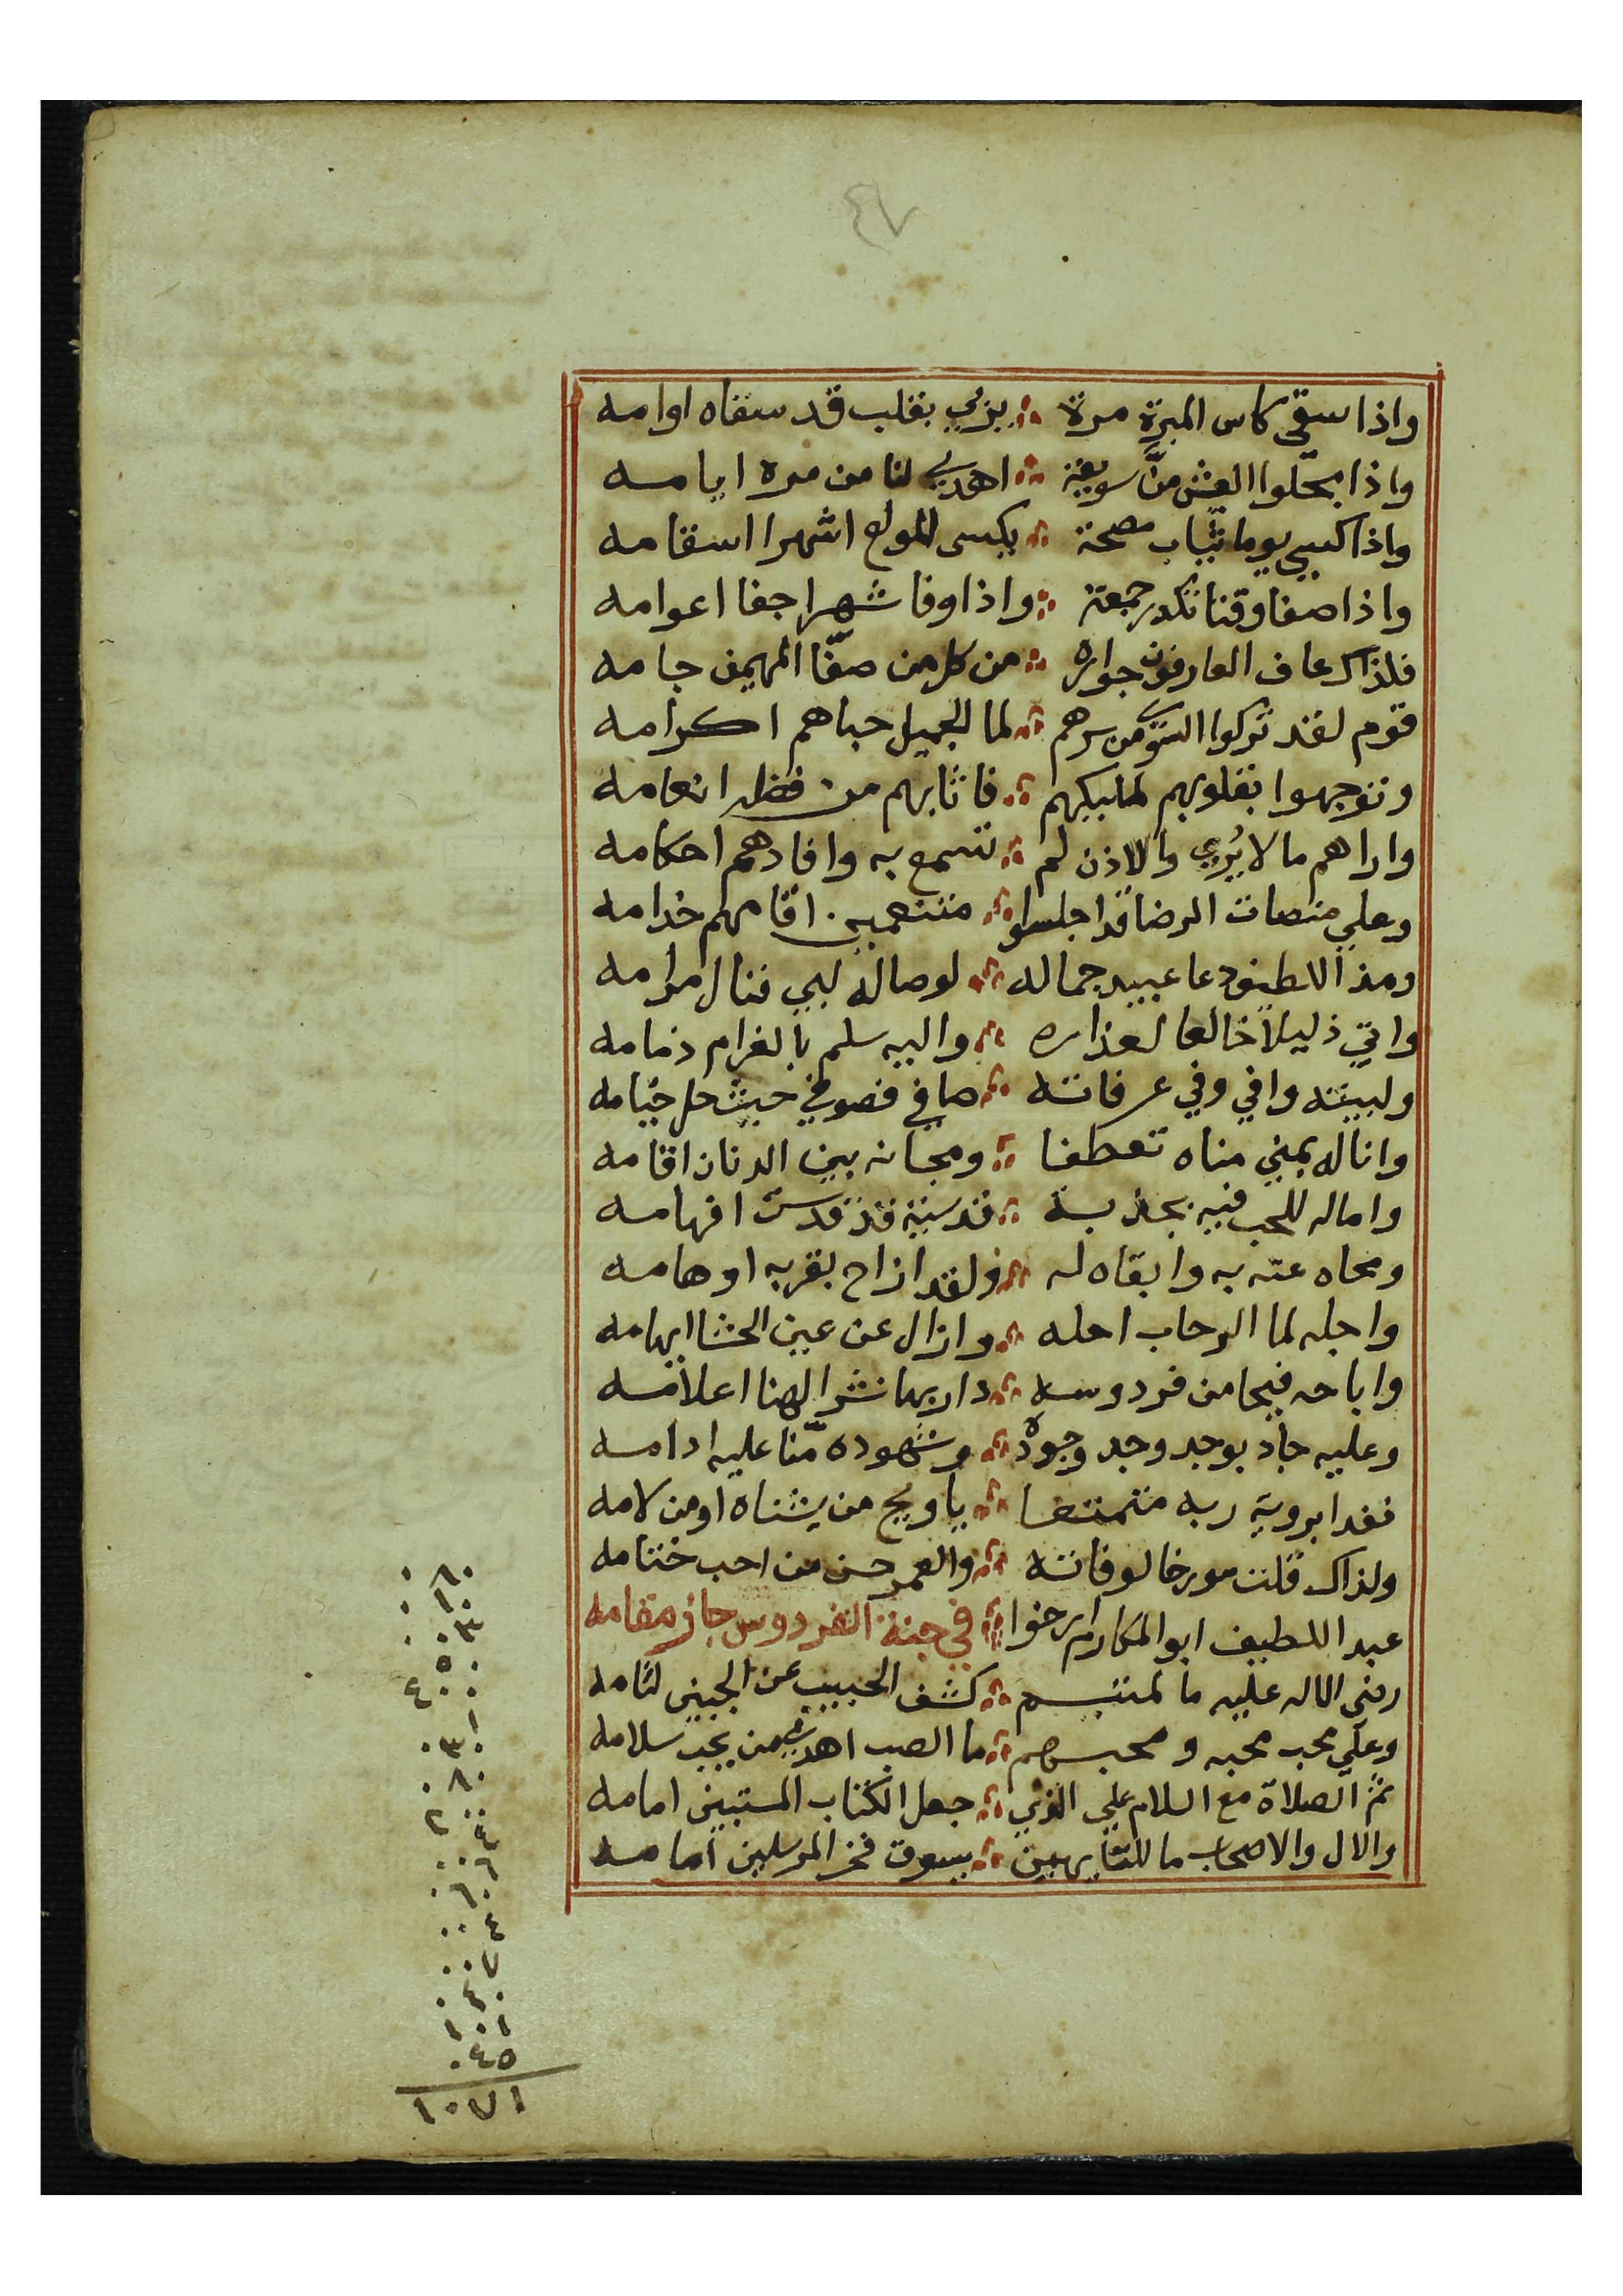 ٧٤
واذا سقي كاس المبرة مرة ؞ يرمي بقلب قد سقاه اوامه
واذا بحلوا العيش منّ سويعة ؞ اهدي لنا من مره ايامه
واذا كسي يوما ثياب مصحة ؞ يكسى المولع اشهرا اسقامه
واذا صفا وقتا تكدر جمعة ؞ واذا وفا شهرا جفا اعوامه
فلذاك عاف العارفون جواره ؞ من كل من صفّا المهيمن جامه
قوم لقد تركوا السوى من سرهم ؞ لما الجميل حباهم اكرامه
وتوجهوا بقلوبهم لمليكهم ؞ فاثابهم من فضله انعامه
واراهم ما لا يُري والاذن لم ؞ تسمع به وافادهم احكامه
وعلي منصات الرضا قد اجلسوا ؞ متنعمين اقامهم خدامه
ومذ اللطيف دعا عبيد جماله ؞ لوصاله لبي فنال مرامه
واتي ذليلا خالعا لعذاره ؞ واليه سلم بالغرام ذمامه
ولبيته وافي وفي عرفاته ؞ صافي فصوفي حيث حل خيامه
واناله بمني مناه تعطفا ؞ وبحانه بين الدنان اقامه
واماله للحب فيه بجذبة ؞ قدسية قد قدست افهامه
ومحاه عنه به وابقاه له ؞ ولقد ازاح بقربه اوهامه
واجله لما الرحاب احله ؞ وازال عن عين الحشا ابهامه
واباحه فيحا من فردوسه ؞ دار بها نشر الهنا اعلامه
وعليه جاد بوجد وجد وجوده ؞ وشهوده منّا عليه ادامه
فغدا بروية ربه متمتعا ؞ يا ويح من يشناه او من لامه
ولذاك قلت مورخا لوفاته ؞ والعمر حسن من احب ختامه
عبد اللطيف ابو المكارم ارخوا ؞ في جنة الفردوس حاز مقامه
رضى الاله عليه ما لمتيم ؞ كشف الحبيب عن الجبين لثامه
وعلي محب محبه ومحبهم ؞ ما الصب اهدي من يحب سلامه
ثم الصلاة مع السلام علي الذي ؞ جعل الكتاب المستبين امامه
والال والاصحاب ما للتايهين ؞ يسوق فخر المرسلين امامه
٠٤٥
١٠٧١